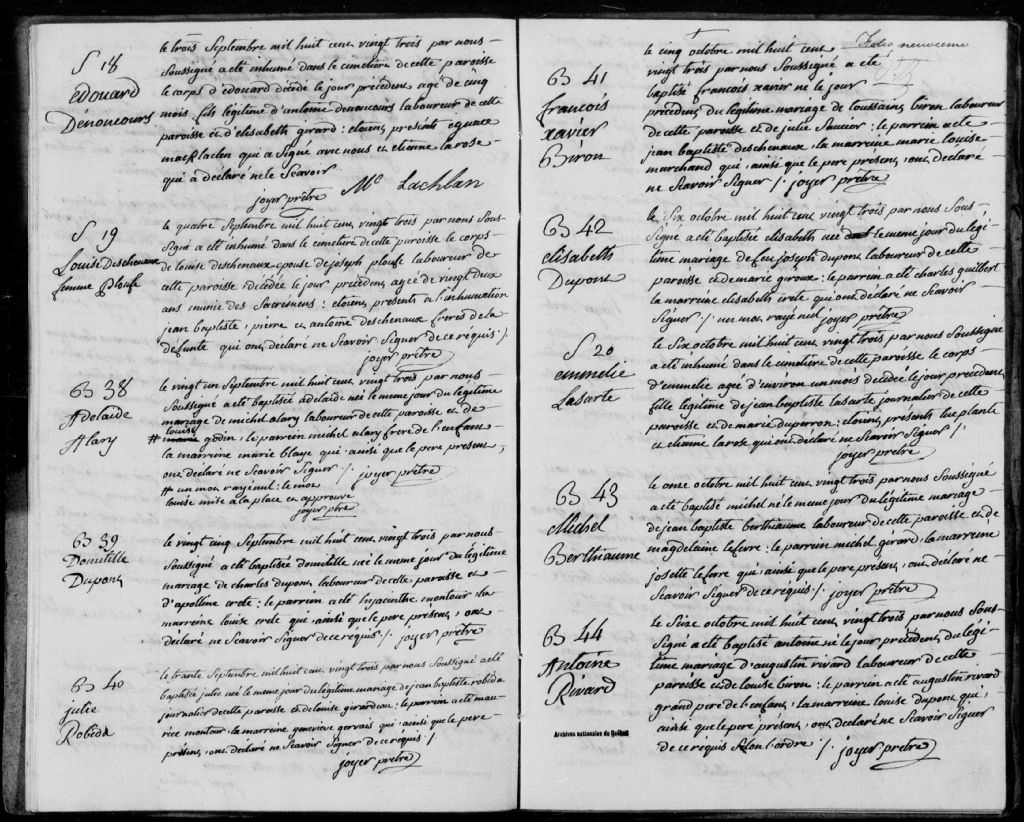 S 18
edouard
Dénoncours
le trois Septembre mil huit cent vingt trois par nous-
Soussigné a eté inhumé dans le cimetiere de cette paroisse
le corps d'edouard décédé le jour précédent agé de cinq
mois fils légitime d'antoine denoncours laboureur de cette
paroisse et d'elisabeth girard : etoient présents
macklaclen qui a Signé avec nous et etienne la rose
qui a déclaré ne le Scavoir
Mc Lachlan
joyer prêtre
S 19
Louise Deschenaux
femme Ploufe
le quatre Septembre mil huit cent vingt trois par nous Sous-
Signé a eté inhumé dans le cimetiere de cette paroisse le corps
de louise deschenaux epouse de joseph ploufe laboureur de
cette paroisse décédée le jour précédent agée de vingt deux
ans munie des Sacremens : etoient présents a l'inhumation
jean baptiste, pierre et antoine deschenaux freres de la
défunte qui ont déclaré ne Scavoir Signer de ce réquis /.
joyer prêtre
B 38
Adelaïde
Alary
le vingt un Septembre mil huit cent vingt trois par nous-
Soussigné a eté baptisée adelaide née le meme jour du légitime
mariage de michel alary laboureur de cette paroisse et de
louise
# marie godin : le parrein michel alary frere de l'enfant
la marreine marie blaye qui ainsi que le pere présent,
ont déclaré ne Scavoir Signer /. joyer prêtre
# un mot rayé nul : le mot
louise mise a la place et approuvé
joyer ptre
B 39
Domitille
Dupont
le vingt cinq Septembre mil huit cent vingt trois par nous
Soussigné a eté baptisée domitille née le meme jour du légitime
mariage de charles dupont laboureur de cette paroisse et
d'apolline crete : le parrein a eté hyacinthe montour la
marreine louise crete qui ainsi que le pere présent, ont
déclaré ne Scavoir Signer de ce réquis /. joyer prêtre
B 40
julie
Robida
le trante Septembre mil huit cent vingt trois par nous Soussigné a eté
baptisée julie née le meme jour du légitime mariage de jean baptiste robida
journalier de cette paroisse et de louise girardeau : le parrein a eté mau-
rice montour la marreine genevieve gervais qui ainsi que le pere-
présent, ont déclaré ne Scavoir Signer de ce réquis /
joyer prêtre
Folio neuvieme
B 41
francois
xavier
Biron
le cinq octobre mil huit cent
vingt trois par nous Soussigné a eté
baptisé francois xavier né le jour
précédent du légitime mariage de toussaint biron laboureur
de cette paroisse et de julie Saucier : le parrein a eté
jean baptiste deschenaux, la marreine marie louise-
marchand qui, ainsi que le pere présent, ont déclaré
ne Scavoir Signer /. joyer prêtre
B 42
elisabeth
Dupont
le Six octobre mil huit cent vingt trois par nous Sous-
Signé a eté baptisée elisabeth née le meme jour du légi-
time mariage de feu joseph dupont laboureur de cette
paroisse et de marie giroux : le parrein a eté charles guilbert
la marreine elisabeth crete qui ont déclaré ne Scavoir
Signer /. un mot rayé nul joyer prêtre
S 20
emmelie
Lasarte
le Six octobre mil huit cent vingt trois par nous Soussigné
a eté inhumé dans le cimetiere de cette paroisse le corps-
d'emmelie agé d'environ un mois décédée le jour précédent
fille légitime de jean baptiste lasarte journalier de cette
paroisse et de marie duperron : etoient présents luc plante
et etienne la rose qui ont déclaré ne Scavoir Signer /.
joyer prêtre
B 43
Michel
Berthiaume
le onze octobre mil huit cent vingt trois par nous Soussigné
a eté baptisé michel né le meme jour du légitime mariage
de jean baptiste berthiaume laboureur de cette paroisse et de
magdelaine lefevre : le parrein michel girard, la marreine
josette lefevre qui ainsi que le pere présent, ont déclaré ne-
Scavoir Signer de ce réquis /. joyer prêtre
B 44
Antoine
Rivard
le Seise octobre mil huit cent vingt trois par nous Sous-
Signé a eté baptisé antoine né le jour précédent du légi-
time mariage d'augustin rivard laboureur de cette
paroisse et de louise biron : le parrein a eté augustin rivard
grand pere de l'enfant, la marreine louise dupont qui,
ainsi que le pere présent, ont déclaré ne Scavoir Signer
de ce requis Selon l'ordre /. joyer prêtre
Archives nationales du Québec